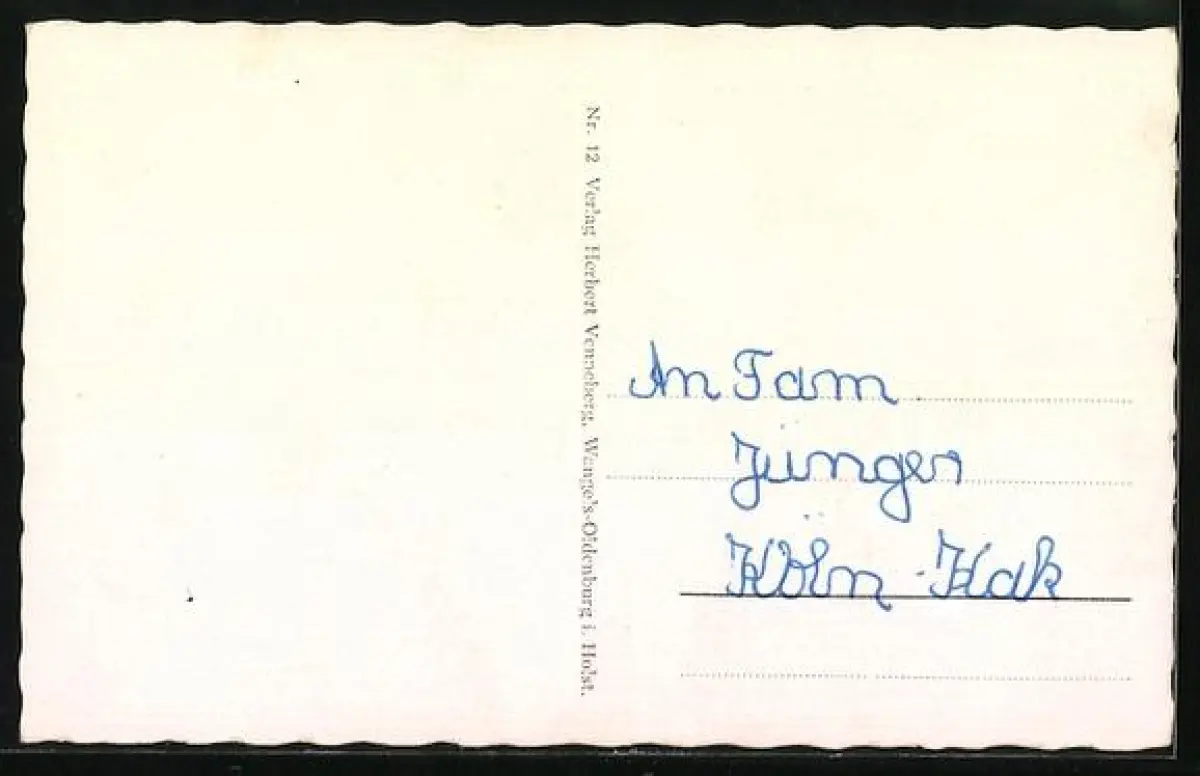 Nr. 12 Verlag Herbert Venneberg, Wange's-Oldenburg i. Holst.
An Fam
Junger
Köln-Kalk